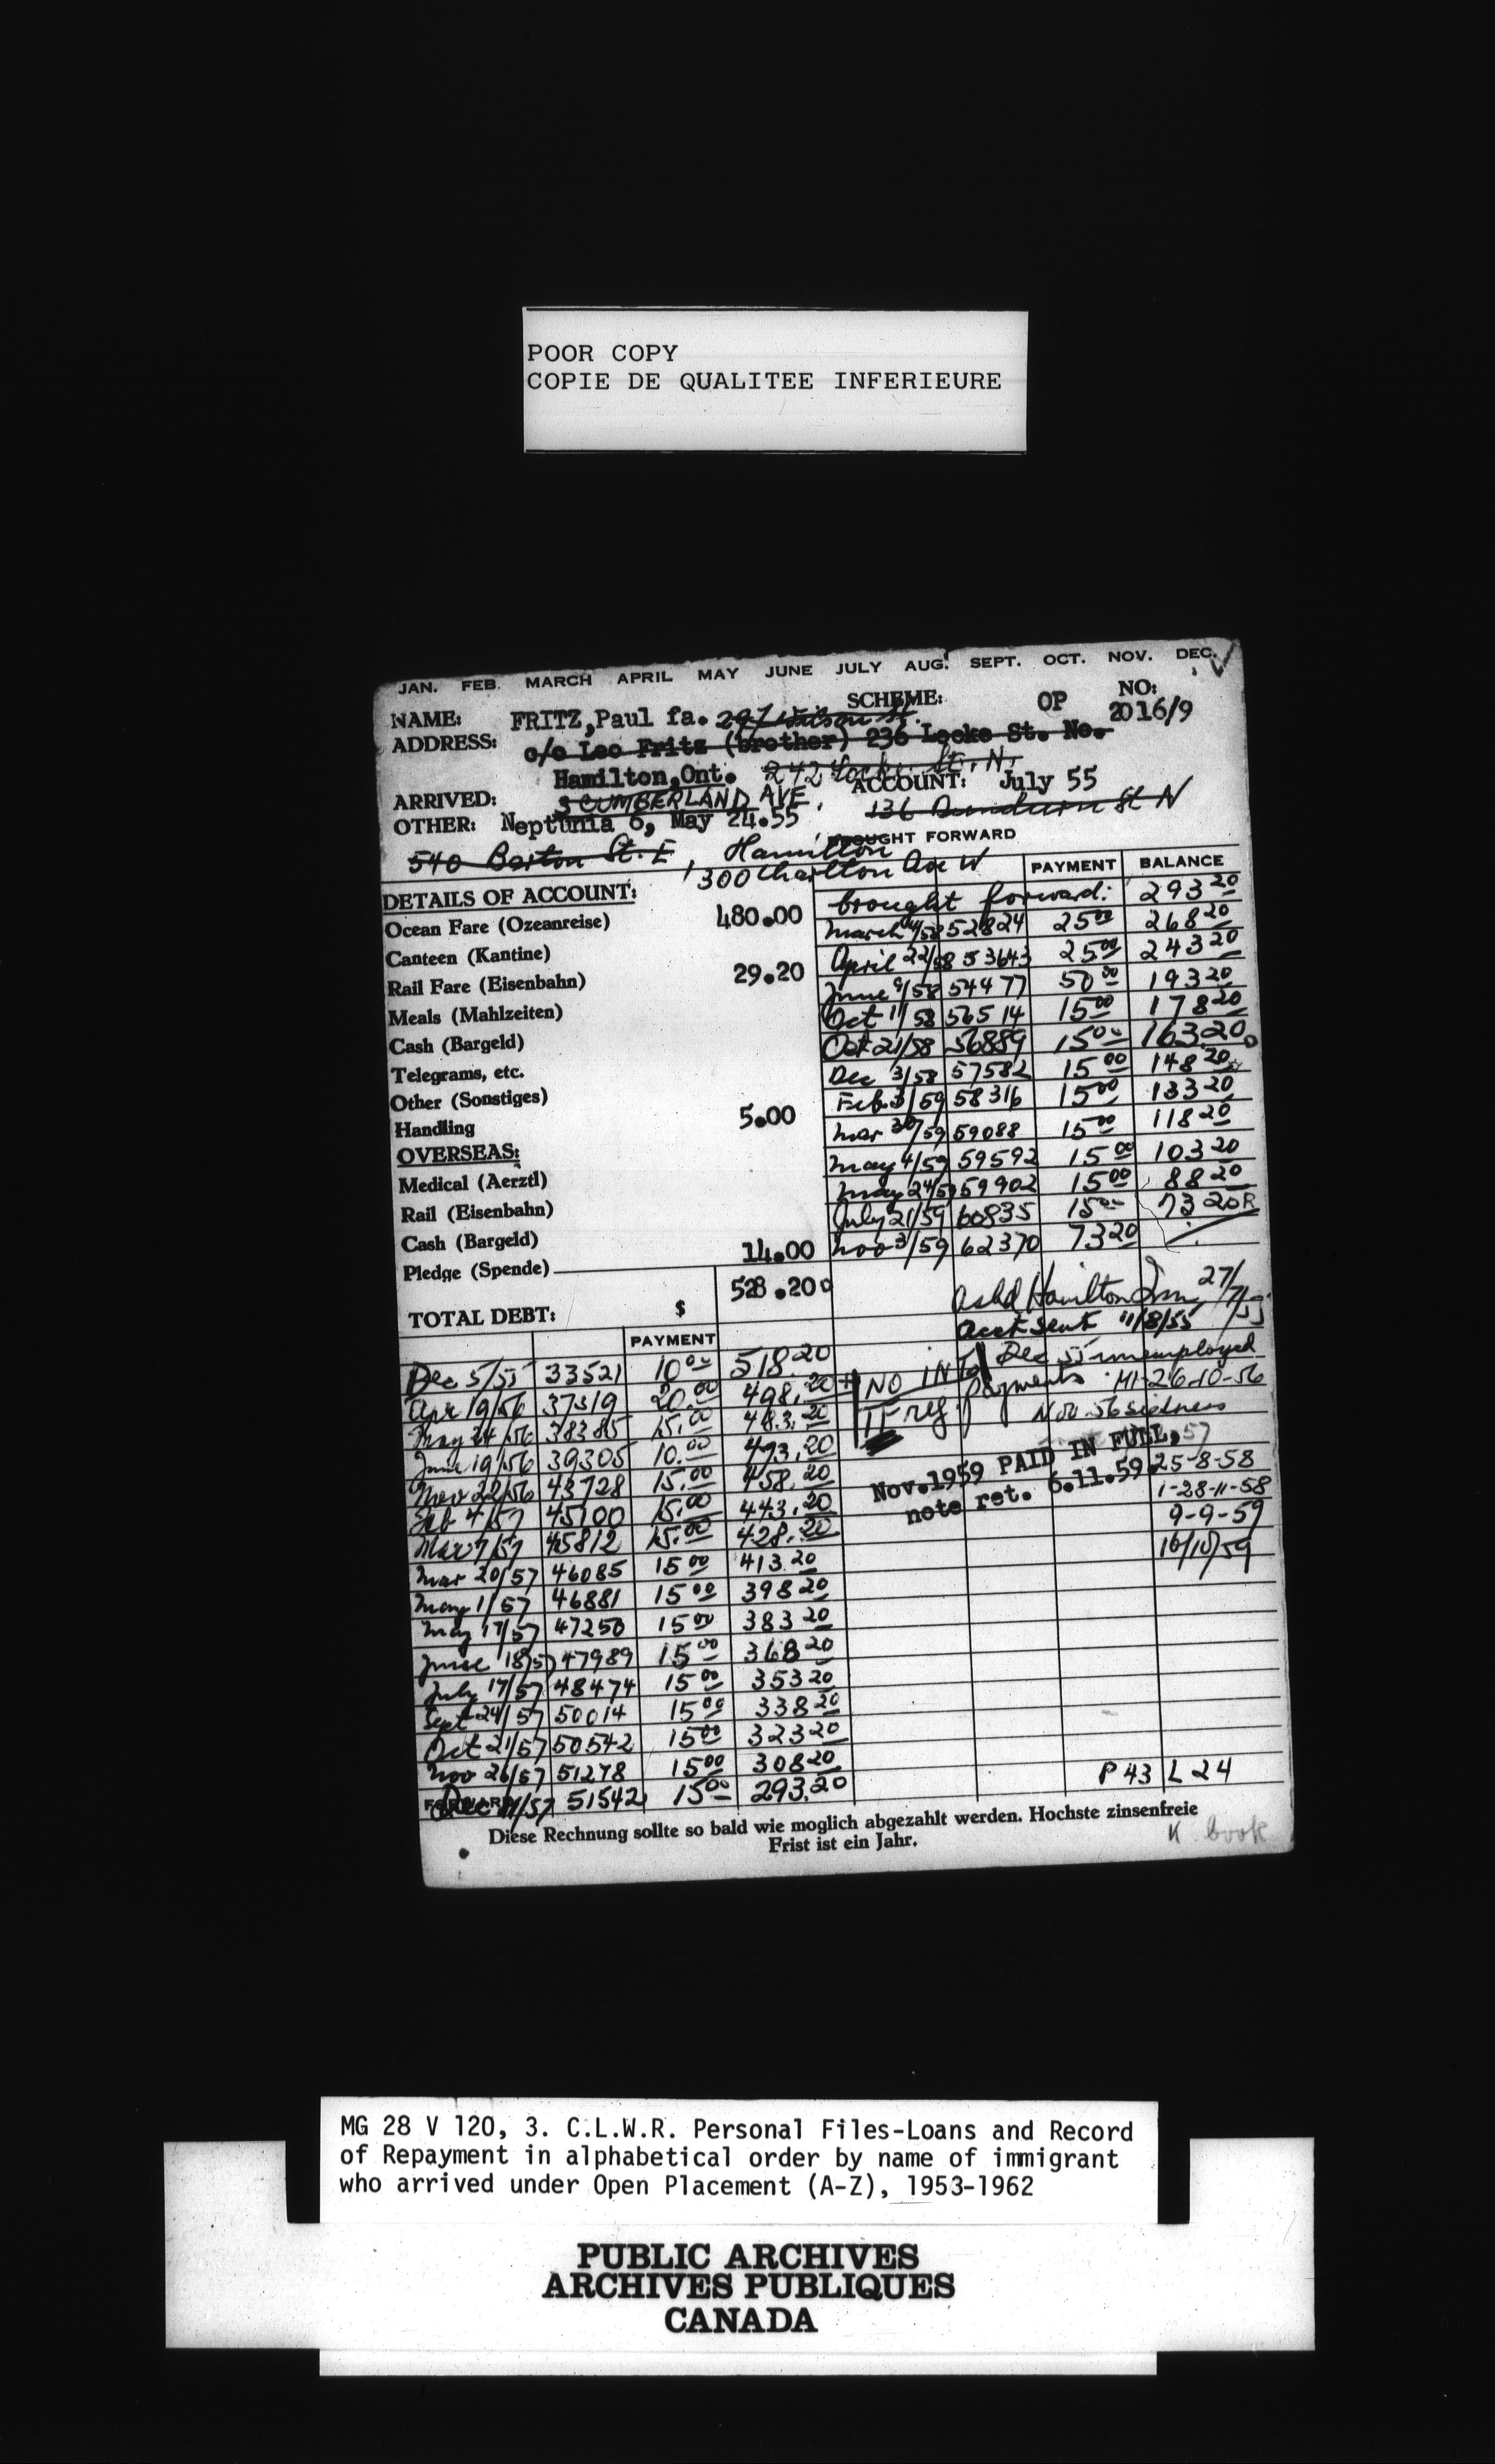 POOR COPY
COPIE DE QUALITEE INFERIEURE
JAN. FEB. MARCH APRIL MAY JUNE JULY AUG. SEPT. OCT. NOV. DEC.
NAME: FRITZ,Paul fa. 297 Wilson St. SCHEME: OP NO: 2016/9
ADDRESS: c/o Leo Fritz (brother) 236 Locke St. No.
Hamilton,Ont. 242 Locke St. N.
ARRIVED: 3 CUMBERLAND AVE, ACCOUNT: July 55
OTHER: Neptunia 6, May 24.55 136 Dundurn St N
BROUGHT FORWARD
540 Barton St. E, Hamilton
300 Charlton Ave W
PAYMENT BALANCE
DETAILS OF ACCOUNT:
Ocean Fare (Ozeanreise) 480.00
Canteen (Kantine)
Rail Fare (Eisenbahn) 29.20
Meals (Mahlzeiten)
Cash (Bargeld)
Telegrams, etc.
Other (Sonstiges)
Handling 5.00
OVERSEAS:
Medical (Aerztl)
Rail (Eisenbahn)
Cash (Bargeld)
Pledge (Spende) 14.00
TOTAL DEBT: $ 528.20
brought forward: 293 20
March 4/58 52824 25 00 268 20
April 22/58 53643 25 00 243 20
June 9/58 54477 50 00 193 20
Oct 1/58 56514 15 00 178 20
Oct 21/58 56889 15 00 163.20
Dec 3/58 57582 15 00 148 20
Feb 3/59 58316 15 00 133 20
Mar 30/59 59088 15 00 118 20
May 4/59 59592 15 00 103 20
May 24/59 59902 15 00 88 20
July 21/59 60835 15 00 73 20 R
Nov 3/59 62370 73 20
Askd Hamilton Imm 27/7/55
acct sent 11/8/55
PAYMENT
Dec 5/55 33521 10 00 518.20
Apr 19/56 37519 20.00 498.20
May 24/56 38385 15.00 483.20
June 19/56 39305 10.00 473.20
Nov 22/56 43728 15.00 458.20
Feb 4/57 45100 15.00 443.20
Mar 7/57 45812 15.00 428.20
Mar 20/57 46085 15 00 413 20
May 1/57 46881 15 00 398 20
May 17/57 47250 15 00 383 20
June 18/57 47989 15 00 368 20
July 17/57 48474 15 00 353 20
Sept 24/57 50014 15 00 338 20
Oct 21/57 50542 15 00 323 20
Nov 26/57 51278 15 00 308 20
FORWARD Dec 11/57 51542 15 00 293.20
Dec 55 unemployed
NO INT
IF reg. payments
M1-26-10-56
Nov 56 sickness
57
Nov.1959 PAID IN FULL,
note ret. 6.11.59
25-8-58
1-28-11-58
9-9-59
10/10/59
P 43 L 24
Diese Rechnung sollte so bald wie moglich abgezahlt werden. Hochste zinsenfreie
Frist ist ein Jahr.
K book
MG 28 V 120, 3. C.L.W.R. Personal Files-Loans and Record
of Repayment in alphabetical order by name of immigrant
who arrived under Open Placement (A-Z), 1953-1962
PUBLIC ARCHIVES
ARCHIVES PUBLIQUES
CANADA